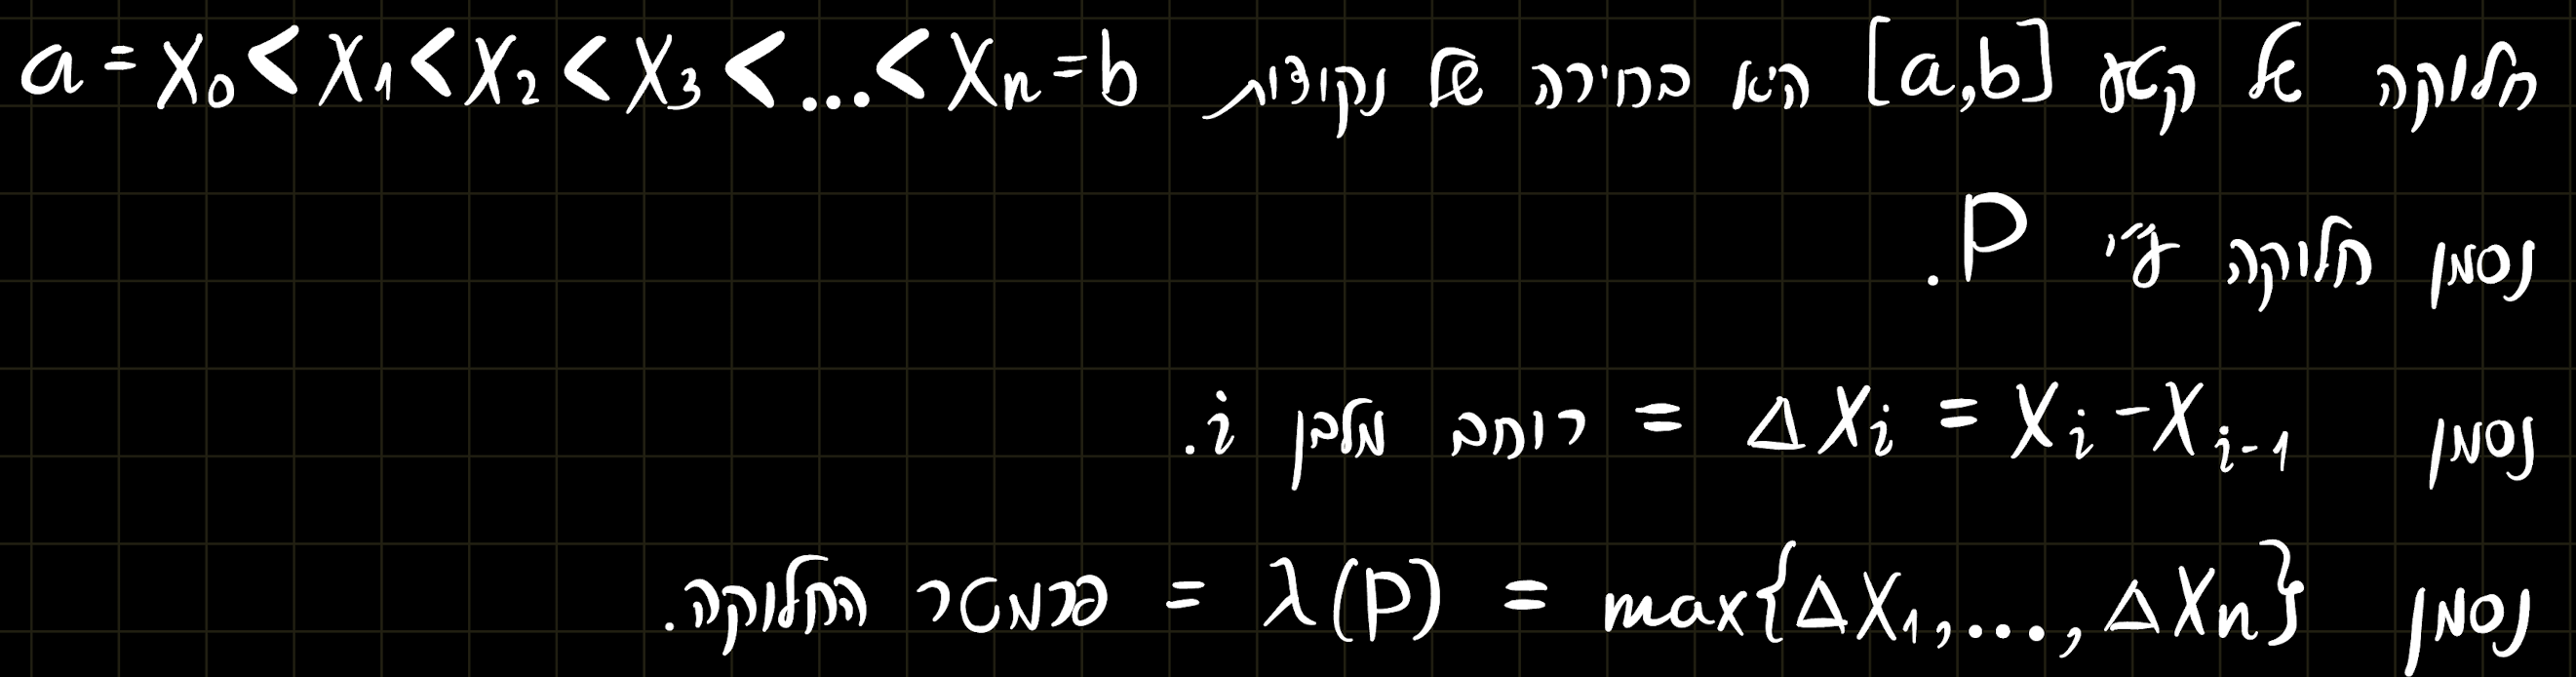 חלוקה של קטע [a,b] היא בחירה של נקודות a = x₀ < x₁ < x₂ < x₃ < ... < xₙ = b
נסמן חלוקה ע״י P.
נסמן Δxᵢ = xᵢ - xᵢ₋₁ = רוחב מלבן i.
נסמן λ(P) = max{Δx₁,...,Δxₙ} = פרמטר החלוקה.